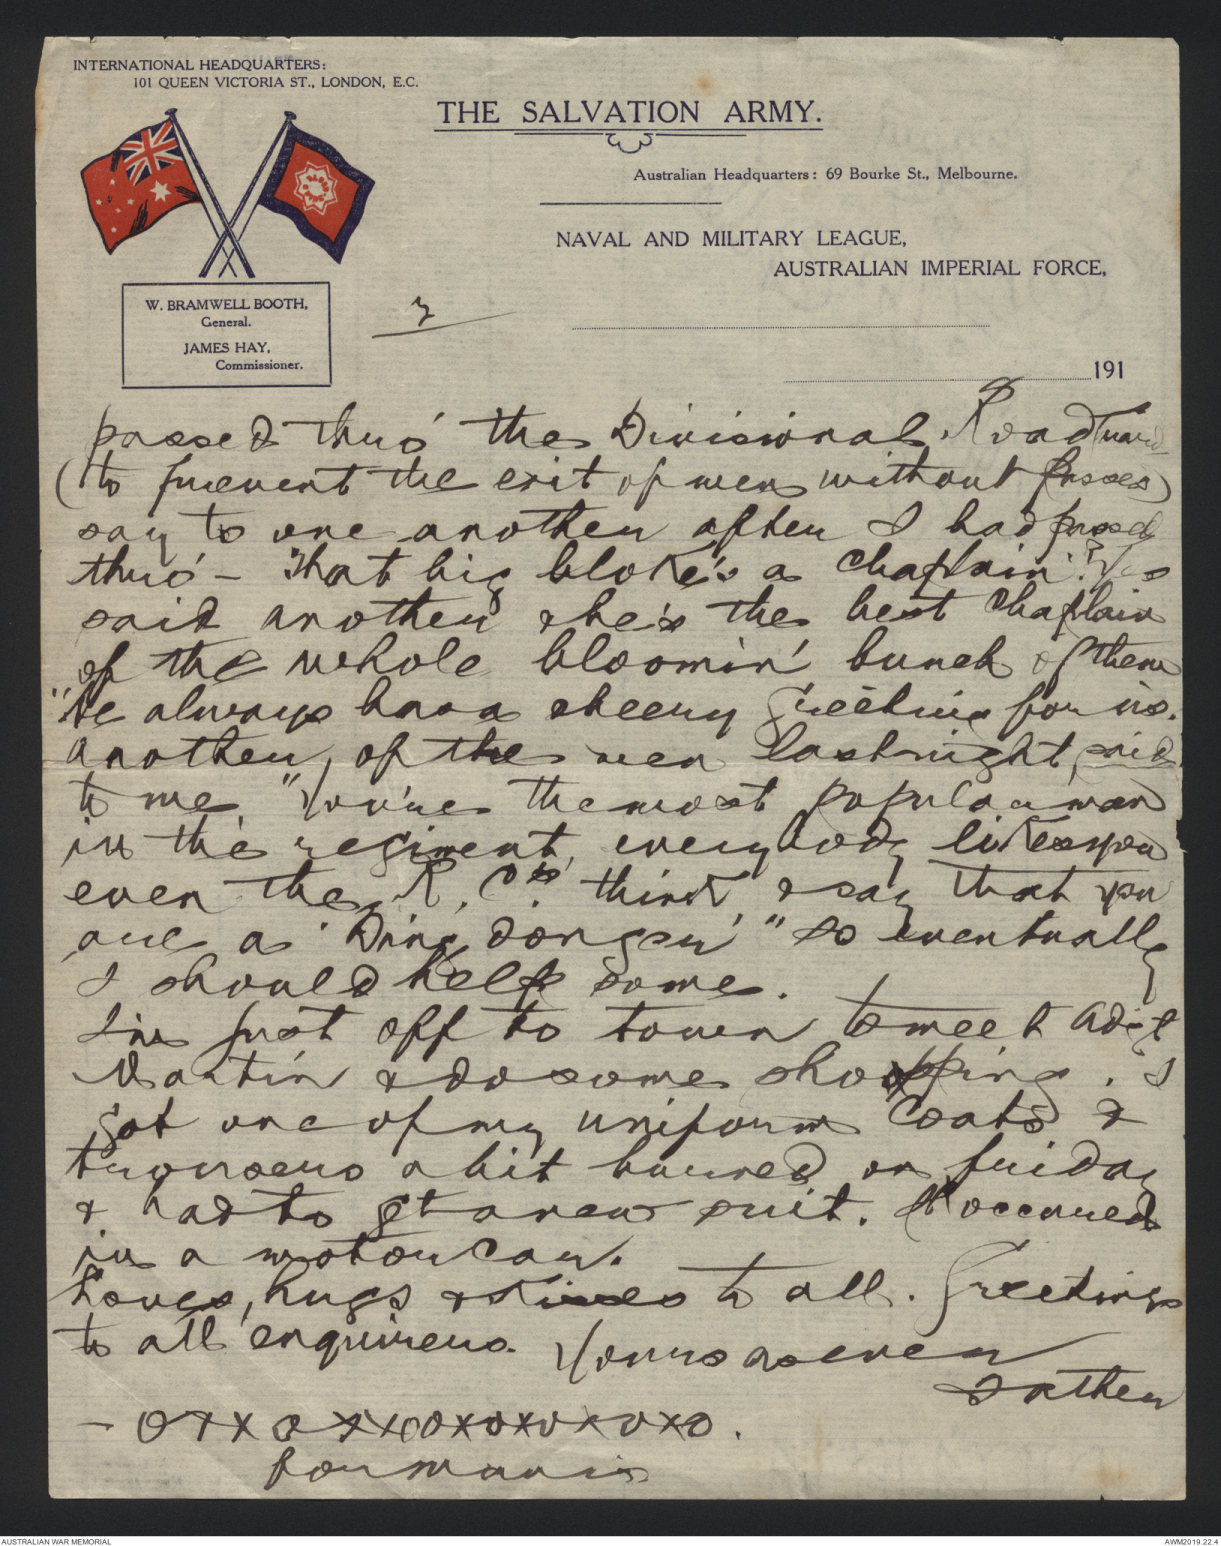 INTERNATIONAL HEADQUARTERS:
101 QUEEN VICTORIA ST., LONDON, E.C.
THE SALVATION ARMY.
Australian Headquarters: 69 Bourke St., Melbourne.
NAVAL AND MILITARY LEAGUE,
AUSTRALIAN IMPERIAL FORCE,
W. BRAMWELL BOOTH,
General.
JAMES HAY,
Commissioner.
3
191
passed thro' the Divisional Road Guard
(to prevent the exit of men without passes)
say to one another after I had passed
thro' - "That big bloke's a Chaplain"? Yes
said another & he's the best Chaplain
of the whole bloomin' bunch of them
"He always has a cheery greeting for us.
another, of the men last night, said
to me, "You're the most popular man
in the regiment, everybody likes you
even the R.C.s' think & say that you
are a 'Ding donger'" so eventually
I should help some.
I'm just off to town to meet Adjt
Martin & do some shopping. I
got one of my uniform Coats &
trousers a bit burned on friday
& had to get a new suit. It occurred
in a motor car.
Loves, hugs & kisses to all. Greetings
to all enquirers. Yours as ever
Father
- O X X O X X O X O X O X O X O.
for Mavis
AUSTRALIAN WAR MEMORIAL
AWM2019.22.4